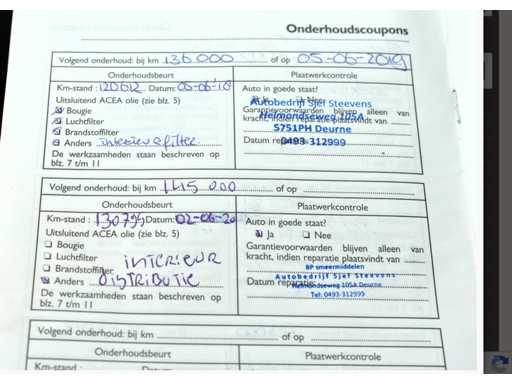 Onderhoudscoupons
Volgend onderhoud: bij km 136.000 of op 05-06-2019
Onderhoudsbeurt Plaatwerkcontrole
Km-stand : 120612 Datum: 05-06-18 Auto in goede staat?
Uitsluitend ACEA olie (zie blz. 5) Ja Nee
Autobedrijf Sjef Steevens
Bougie Garantievoorwaarden blijven alleen van
Luchtfilter kracht, indien reparatie plaatsvindt van
Helmondseweg 105A
Brandstoffilter 5751PH Deurne
Anders interieurfilter Datum reparatie:
0493-312999
De werkzaamheden staan beschreven op
blz. 7 t/m 11
Volgend onderhoud: bij km 145 000 of op
Onderhoudsbeurt Plaatwerkcontrole
Km-stand : 130799 Datum: 02-06-20 Auto in goede staat?
Uitsluitend ACEA olie (zie blz. 5) Ja Nee
Bougie Garantievoorwaarden blijven alleen van
Luchtfilter INTERIEUR kracht, indien reparatie plaatsvindt van
Brandstoffilter BP smeermiddelen
Autobedrijf Sjef Steevens
Anders DISTRIBUTIE Datum reparatie:
Helmondseweg 105A Deurne
De werkzaamheden staan beschreven op Tel: 0493-312999
blz. 7 t/m 11
Volgend onderhoud: bij km of op
Onderhoudsbeurt Plaatwerkcontrole
Km-stand : Datum: Auto in goede staat?